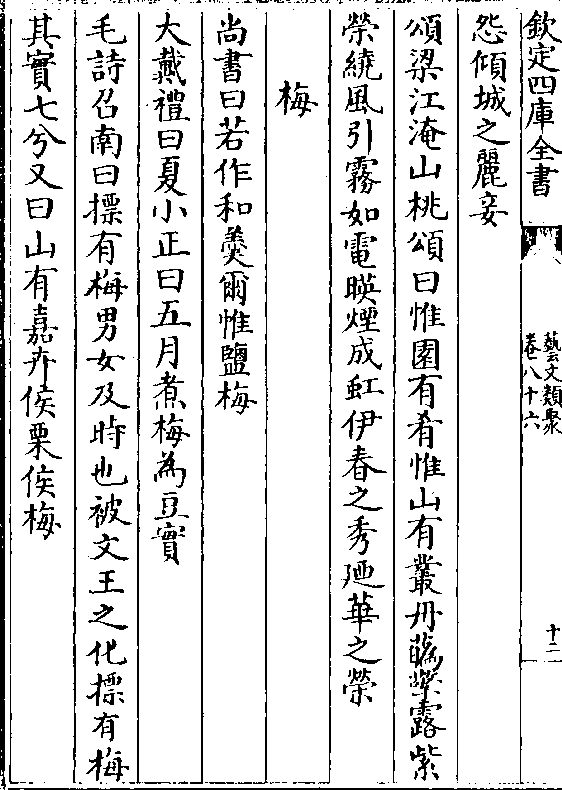 欽定四庫全書
藝文類聚
卷八十六
十二
怨傾城之麗妾
頌梁江淹山桃頌曰惟園有肴惟山有叢丹藹擎露紫
榮繞風引霧如電映煙成虹伊春之秀廼華之榮
梅
尚書曰若作和羮爾惟鹽梅
大戴禮曰夏小正曰五月煮梅為豆實
毛詩召南曰摽有梅男女及時也被文王之化摽有梅
其實七兮又曰山有嘉卉侯栗侯梅